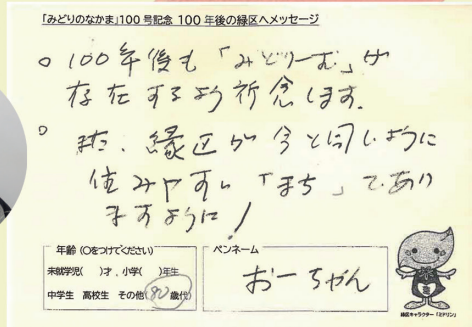 「みどりのなかま」100号記念 100年後の緑区へメッセージ
○ 100年後も「みどりーむ」が
存在するよう祈念します。
○ また、緑区が今と同じように
住みやすい「まち」であり
ますように！
年齢（○をつけてください）
未就学児（ ）才、小学（ ）年生
中学生 高校生 その他（80歳代）
ペンネーム
おーちゃん
緑区キャラクター「ミドリン」